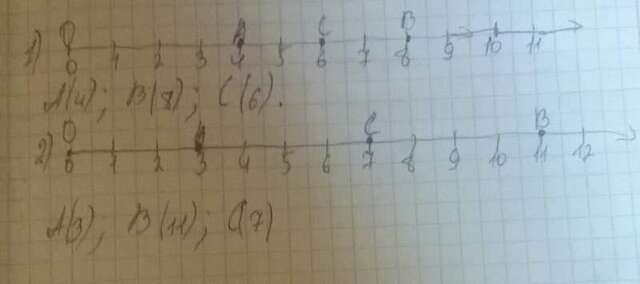 1) O A C B
0 1 2 3 4 5 6 7 8 9 10 11
A(4); B(8); C(6).
2) O A C B
0 1 2 3 4 5 6 7 8 9 10 11 12
A(3); B(11); C(7)